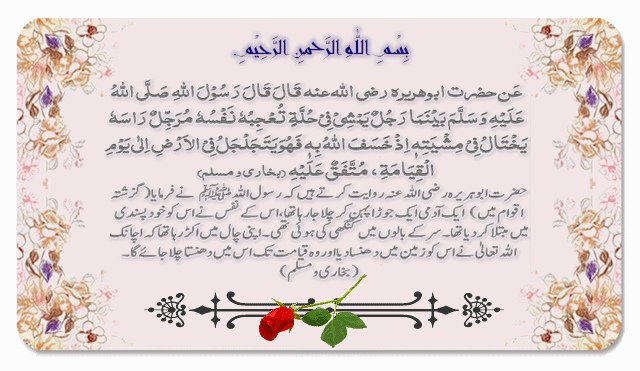 بِسْمِ اللّٰهِ الرَّحْمٰنِ الرَّحِيْمِ
عَن حضرت ابوهريره رضی اللہ عنہ قَالَ قَالَ رَسُوْلَ اللّٰهِ صَلَّی اللّٰهُ
عَلَيْهِ وَسَلَّمَ بَيْنَمَا رَجُلٌ يَمْشِیْ فِیْ حُلَّةٍ تُعْجِبُهُ نَفْسُهُ مُرَجِّلٌ رَاسَهُ
يَخْتَالُ فِیْ مِشْيَتِهٖ إِذْ خَسَفَ اللّٰهُ بِهٖ فَهُوَ يَتَجَلْجَلُ فِیْ الْاَرْضِ اِلٰی يَوْمِ
الْقِيَامَةِ ، مُتَّفَقٌ عَلَيْهِ (بخاری و مسلم)
حضرت ابو ہریرہ رضی اللہ عنہ روایت کرتے ہیں کہ رسول اللہ ﷺ نے فرمایا (گزشتہ
اقوام میں) ایک آدمی ایک جوڑا پہن کر چلا جا رہا تھا، اس کے نفس نے اس کو خود پسندی
میں مبتلا کر دیا تھا۔ سر کے بالوں میں کنگھی کی ہوئی تھی۔ اپنی چال میں اکڑ رہا تھا کہ اچانک
اللہ تعالیٰ نے اس کو زمین میں دھنسا دیا اور وہ قیامت تک اس میں دھنستا چلا جائے گا۔
(بخاری و مسلم)